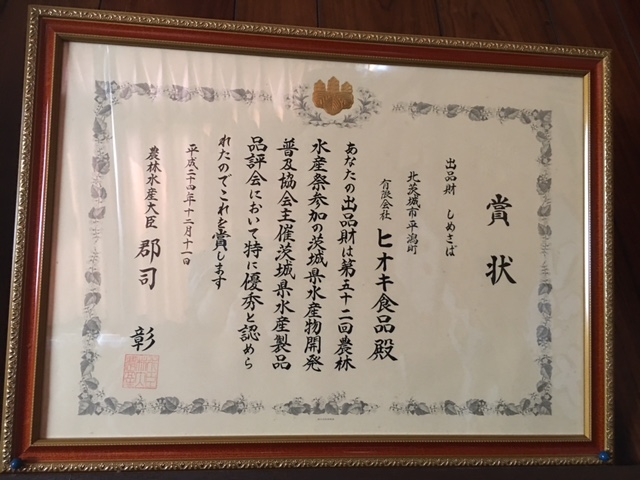 賞状
出品財 しめさば
北茨城市平潟町
有限会社 ヒオキ食品殿
あなたの出品財は第五十二回農林
水産祭参加の茨城県水産物開発
普及協会主催茨城県水産製品
品評会において特に優秀と認めら
れたのでこれを賞します
平成二十四年十二月十一日
農林水産大臣 郡司 彰